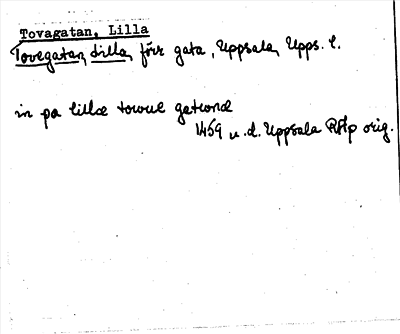 Tovagatan, Lilla
Tovegatan, Lilla, förr gata, Uppsala, Upps. l.
in pa lillæ towue gatwnæ
1459 u.d. Uppsala RAp orig.